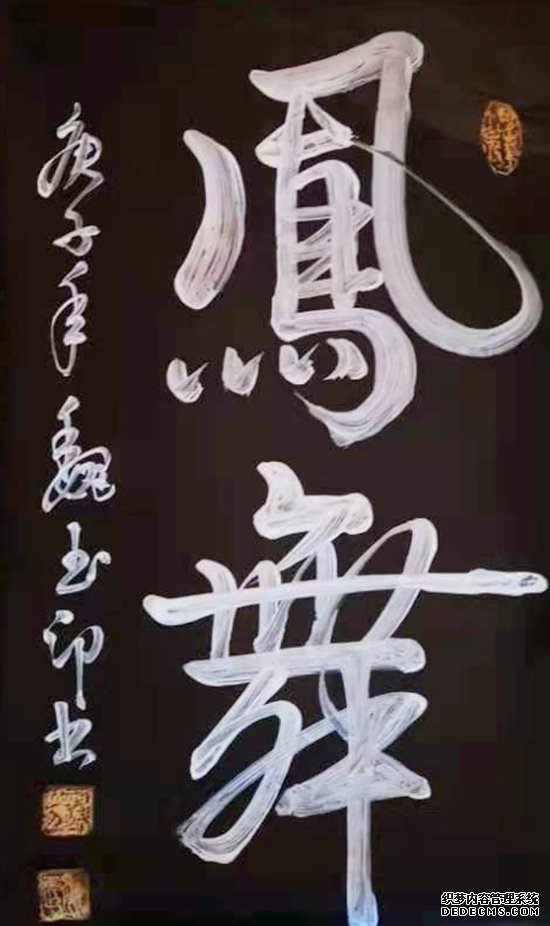 鳳舞
庚子年 魏玉印书
织梦内容管理系统
DEDECMS.COM